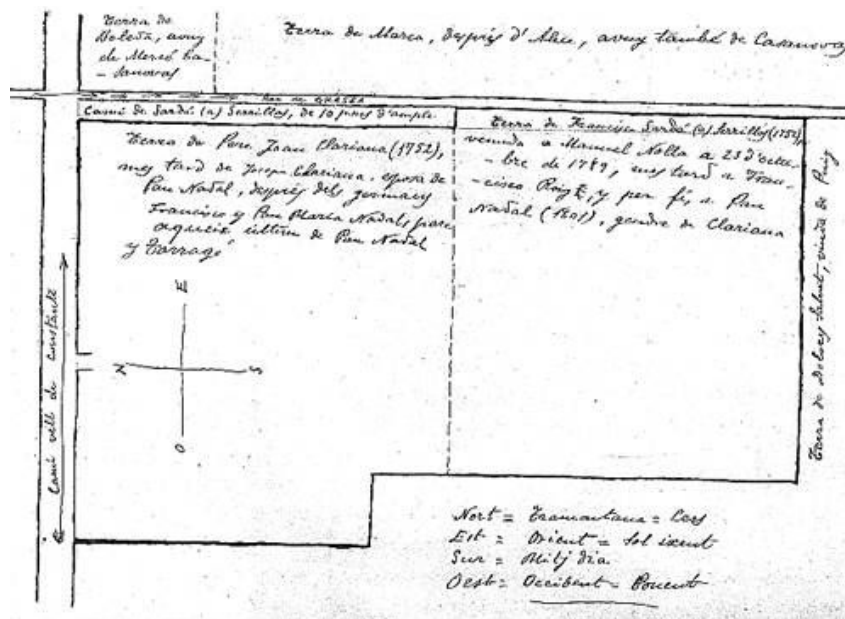 Terra de
Boleda, avuy
de Mercé Ca-
- sanovas
Terra de Marca, després d'Aleu, avuy també de Casanovas
Camí de Sardá (a) Serrillos, de 10 pams d'ample
Terra de Pere Joan Clariana (1752),
mes tard de Josepa Clariana, esposa de
Pau Nadal, després dels germans
Francisco y Pau María Nadal, pare
aqueix últim de Pau Nadal
y Tarragó
Terra de Francisco Sardá (a) Serrillos (1752),
venuda a Manuel Nolla a 23 d'octu-
- bre de 1789, mes tard a Fran-
- cisco Roig, y per fi, a Pau
Nadal (1801), gendre de Clariana
Terra de Dolors Salvat, viuda de Puig
Camí vell de Constantí
E
N
S
O
Nort = Tramontana = Cers
Est = Orient = Sol ixent
Sur = Mitj dia
Oest = Occident = Ponent